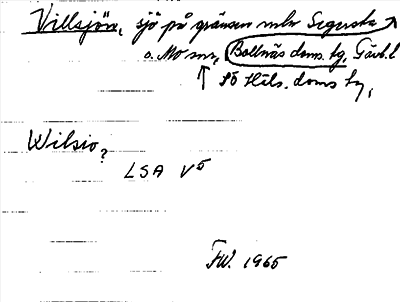 Villsjön, sjö på gränsen mln Segersta
o. Mo snr, Bollnäs doms. tg, Gävl. l
↑ SÖ Häls. doms tg,
Wilsio?
LSA V5
FW. 1965